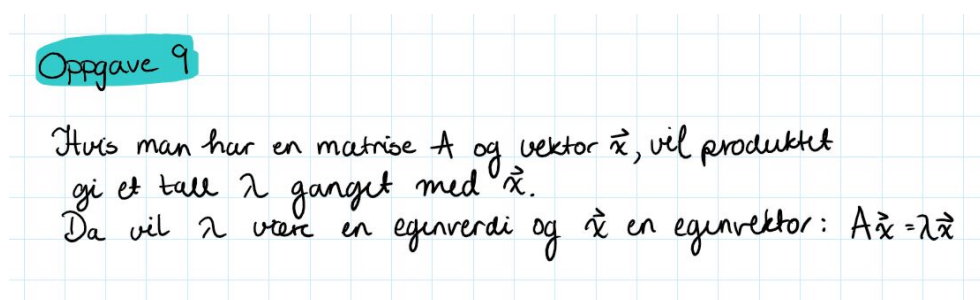 Oppgave 9
Hvis man har en matrise A og vektor x⃗, vil produktet
gi et tall λ ganget med x⃗.
Da vil λ være en egenverdi og x⃗ en egenvektor: Ax⃗ = λx⃗